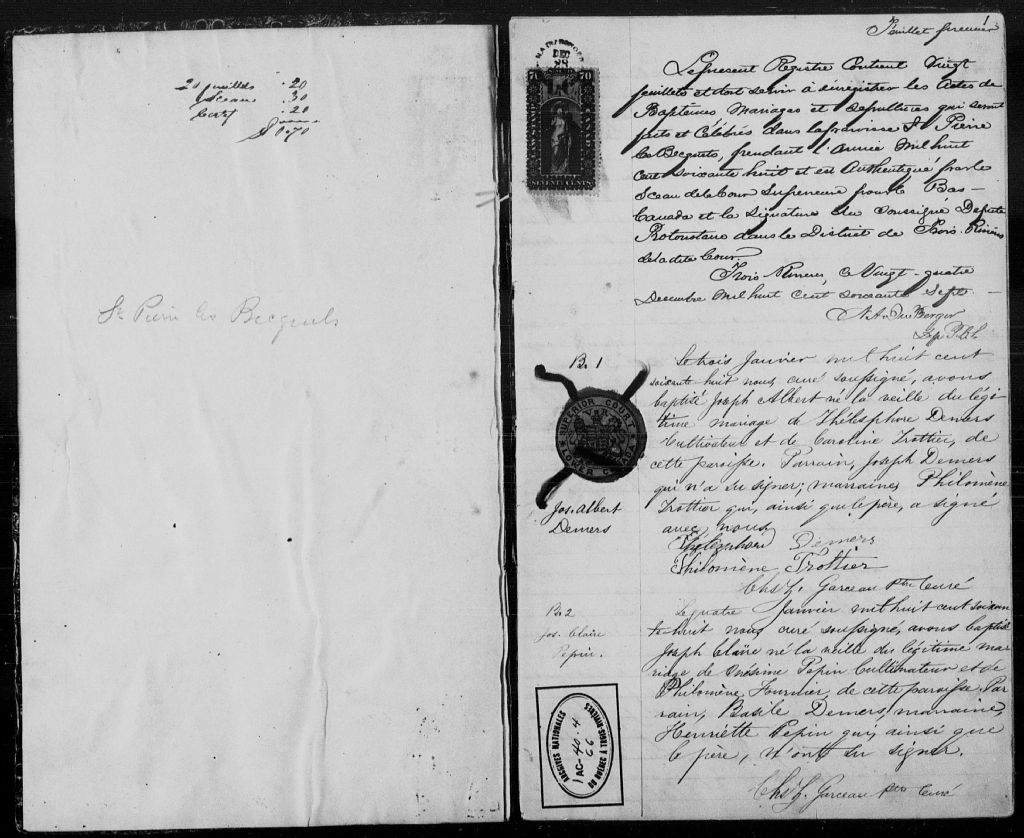 20 feuillets .20
Sceau .30
.20
$0.70
St Pierre les Becquets
1
Feuillet premier
DEC
70 70
SEVENTY CENTS
Le present Registre Contient Vingt
feuillets et doit servir à enregistrer les Actes de
Baptemes Mariages et Sepultures qui seront
faits et Célébrés dans la paroisse St Pierre
les Becquets, pendant l'Année Mil huit
Cent soixante huit et est Authentiqué par le
Sceau de la Cour Superieure pour le Bas-
Canada et la Signature du Soussigné Deputé
Protonotaire dans le District de Trois-Rivières
de la dite Cour
Trois-Rivieres, ce Vingt-quatre
Decembre Mil huit Cent soixante Sept.
Dep P.C.S.
B. 1
SUPERIOR COURT
LOWER CANADA
Jos. Albert
Demers
Le trois Janvier mil huit cent
soixante huit nous, curé soussigné, avons
baptisé Joseph Albert né la veille du légi-
time mariage de Thélesphore Demers
Cultivateur et de Caroline Trottier, de
cette paroisse. Parrain, Joseph Demers
qui n'a su signer; marraine, Philomène
Trottier qui, ainsi que le père, a signé
avec nous
Thélesphore Demers
Philomène Trottier
Chs Z. Garceau Ptre Curé
B. 2
Jos. Claire
Pepin.
Le quatre Janvier mil huit cent soixan
te-huit nous curé soussigné, avons baptisé
Joseph Claire né la veille du légitime ma-
riage de Onésime Pepin Cultivateur et de
Philomène Fournier, de cette paroisse. Par
rain, Basile Demers, marraine,
Henriette Pepin qui, ainsi que
le père, n'ont su signer.
Chs Z. Garceau Ptre Curé
ARCHIVES NATIONALES
DU QUÉBEC À TROIS-RIVIÈRES
1AC-40.4
66